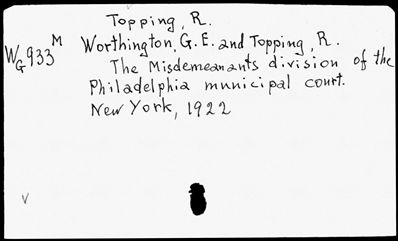 Topping, R.
WG933M Worthington, G. E. and Topping, R.
The Misdemeanants division of the
Philadelphia municipal court.
New York, 1922
v